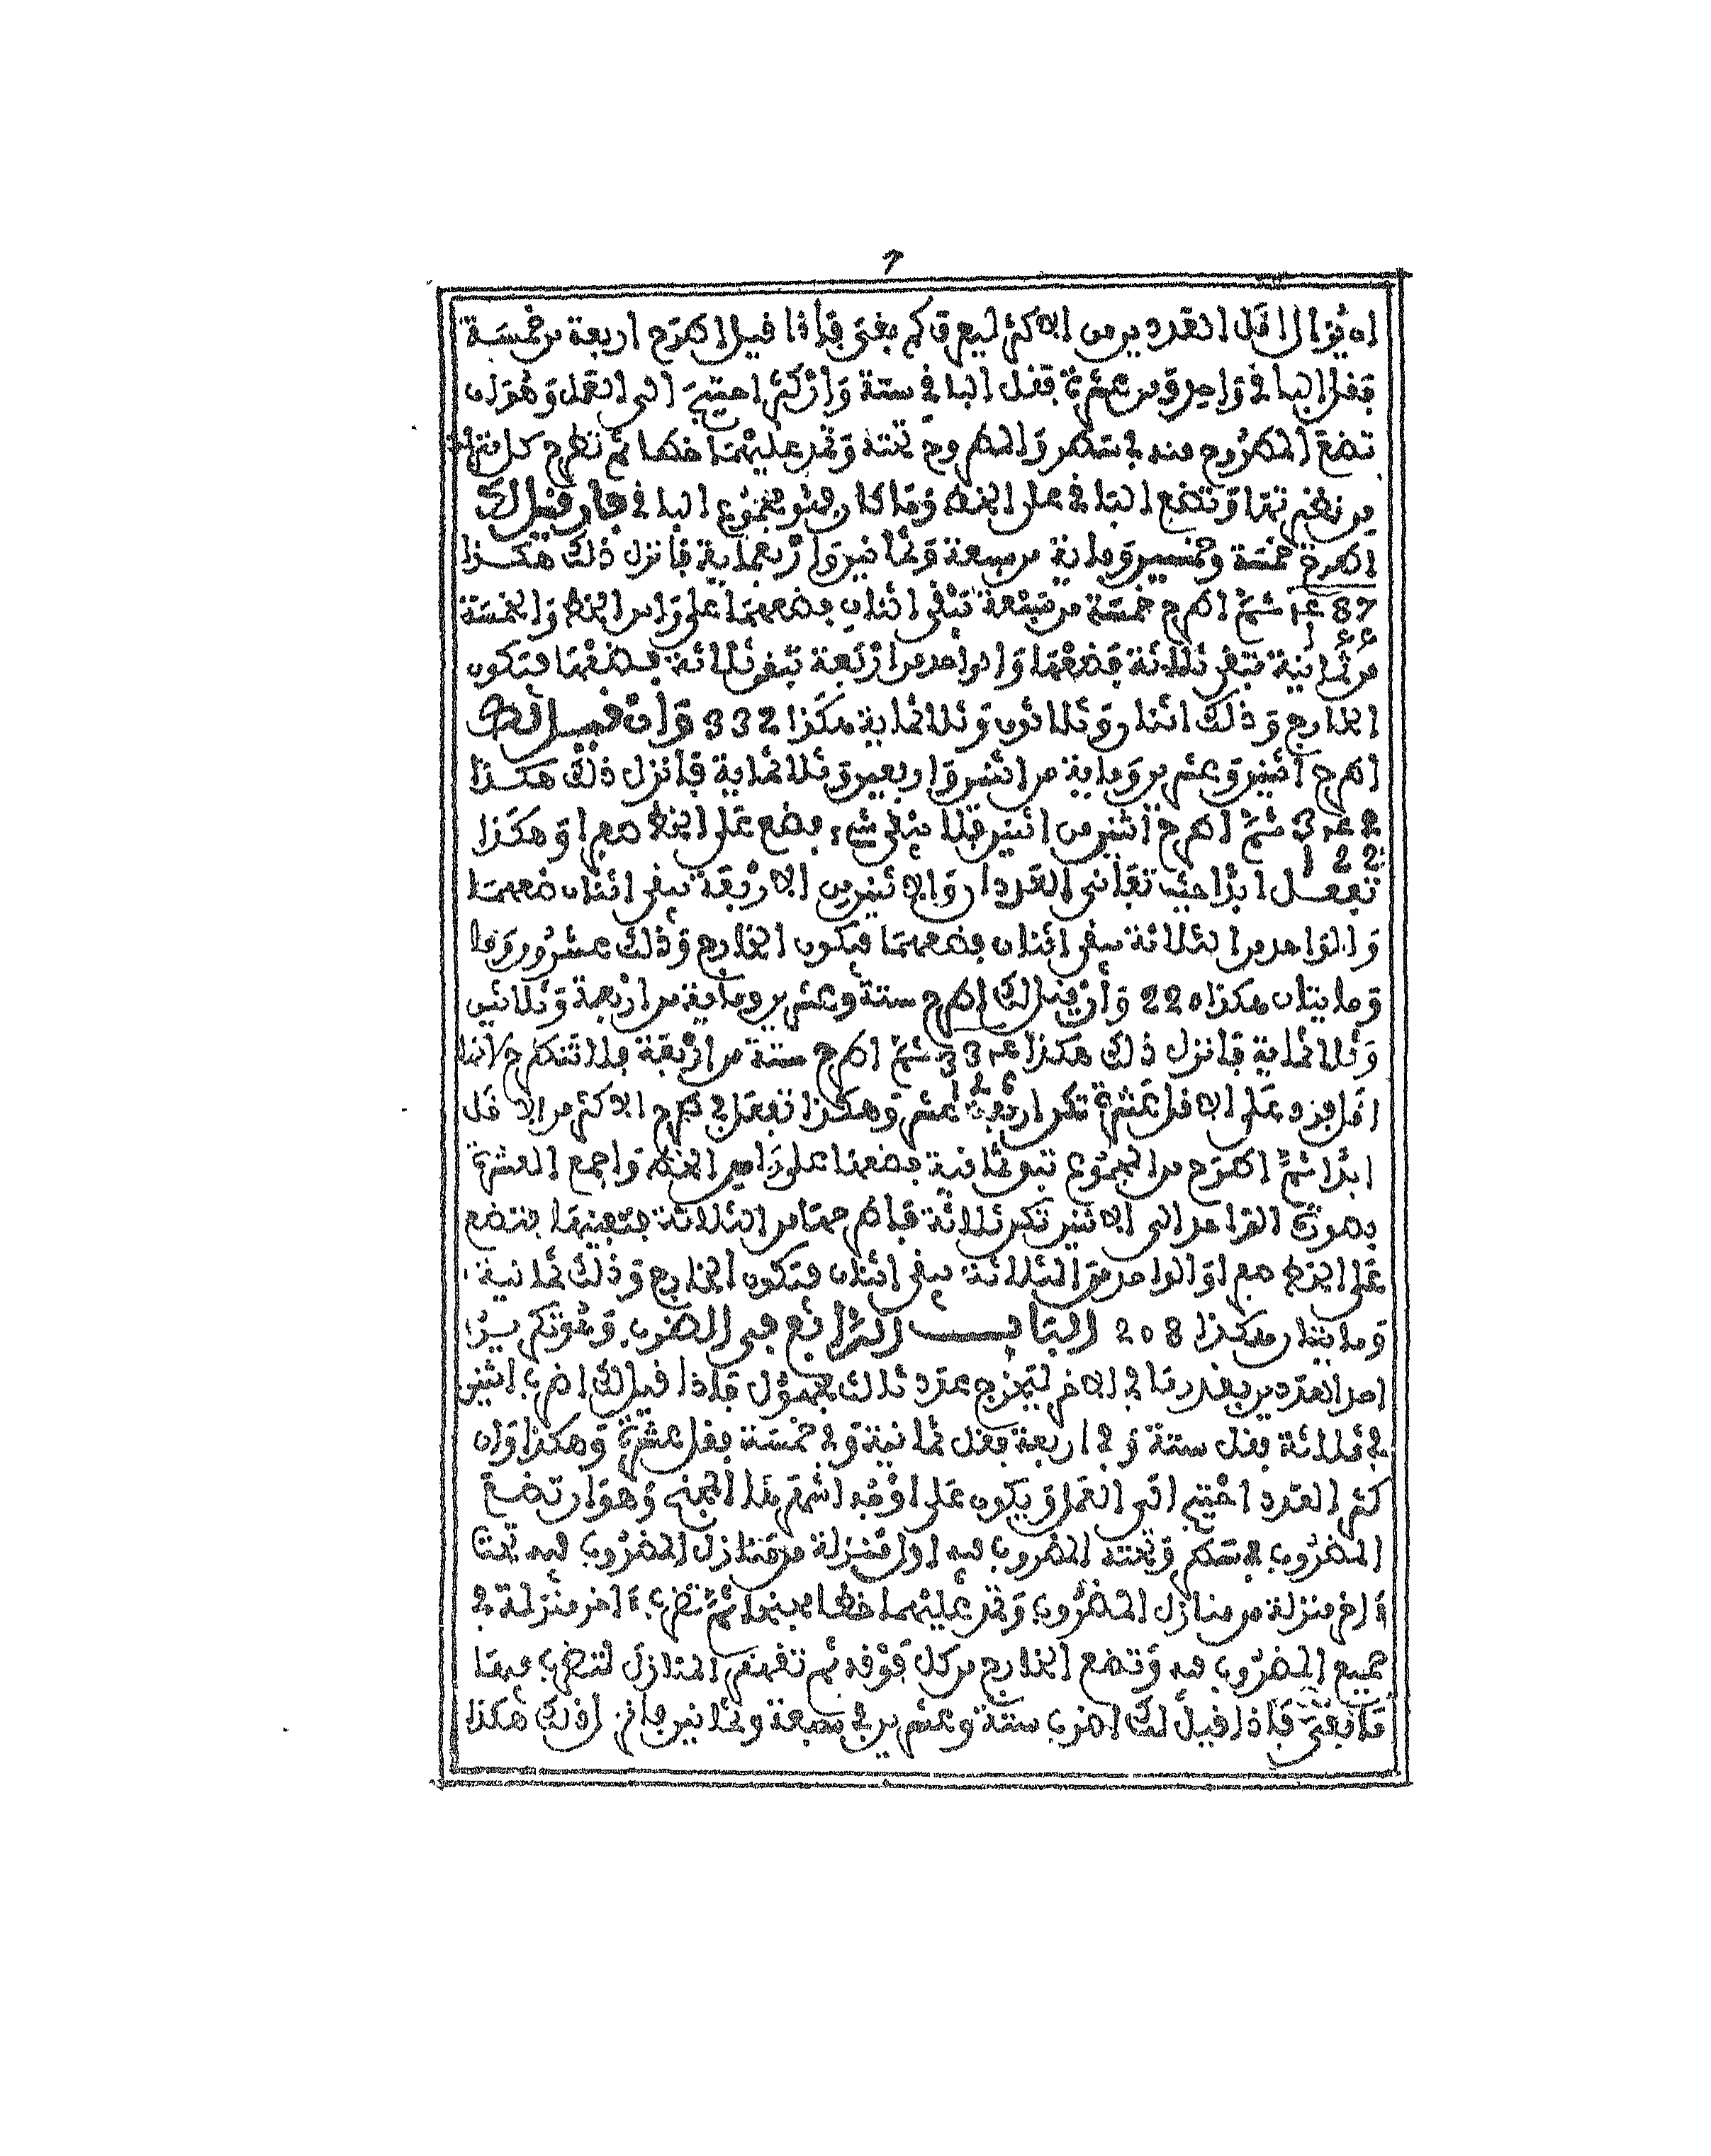 7
ان يزال اقل العددين من الاكثر ليعرف كم بقي فاذا قيل اطرح اربعة من خمسة
فقل الباقي واحد ومن عشرة فقل الباقي ستة وان كثر احتيج الى العمل وهو ان
تضع المطروح منه في سطر والمطروح تحته وتمد عليهما خطا ثم تطرح كل منزلة
من نظيرتها وتضع الباقي على الخط وما كان فهو مجموع الباقي فان قيل لك
اطرح خمسة وخمسين وماية من سبعة وثمانين واربعماية فانزل ذلك هكذا
487 ثم اطرح خمسة من سبعة تبقى اثنان فضعهما على راس الخط والخمسة
155
من ثمانية تبقى ثلاثة فضعها والواحد من اربعة تبقى ثلاثة فضعها فيكون
الخارج وذلك اثنان وثلاثون وثلاثماية هكذا 332 وان قيل لك
اطرح اثنين وعشرين وماية من اثنين واربعين وثلاثماية فانزل ذلك هكذا
342 ثم اطرح اثنين من اثنين فلا يبقى شيء فضع على الخط صفرا وهكذا
122
تفعل ابدا حيث تفانى العددان والاثنين من الاربعة يبقى اثنان ضعهما
والواحد من الثلاثة يبقى اثنان فضعهما فيكون الخارج وذلك عشرون وما
ومايتان هكذا 220 وان قيل لك اطرح ستة وعشرين وماية من اربعة وثلاثين
وثلاثماية فانزل ذلك هكذا 334 ثم اطرح ستة من اربعة فلا تنطرح لانها
126
اقل فزد على الاقل عشرة تكن اربعة عشر وهكذا تفعل في طرح الاكثر من الاقل
ابدا ثم اطرح من المجموع تبق ثمانية فضعها على راس الخط واجمع العشرة
بصورة الواحد الى الاثنين تكن ثلاثة فاطرحها من الثلاثة فتفنيها فتضع
على الخط صفرا والواحد من الثلاثة يبقى اثنان فيكون الخارج وذلك ثمانية
ومايتان هكذا 208 الباب الرابع في الضرب وهو تكرير
احد العددين بقدر ما في الاخر ليخرج عدد ثالث مجهول فاذا قيل لك اضرب اثنين
في ثلاثة فقل ستة وفي اربعة فقل ثمانية وفي خمسة فقل عشرة وهكذا وان
كثر العدد احتيج الى العمل ويكون على اوجه اشهرها المجنح وهو ان تضع
المضروب في سطر وتحته المضروب فيه اول منزلة من منازل المضروب فيه تحت
ءاخر منزلة من منازل المضروب وتمد عليهما خطا بينهما ثم تضرب ءاخر منزلة في
جميع المضروب فيه وتضع الخارج من كل فوقه ثم تقهقر المنازل لتضرب فيها
ما بقي فاذا قيل لك اضرب ستة وعشرين في سبعة وثمانين فانزل ذلك هكذا